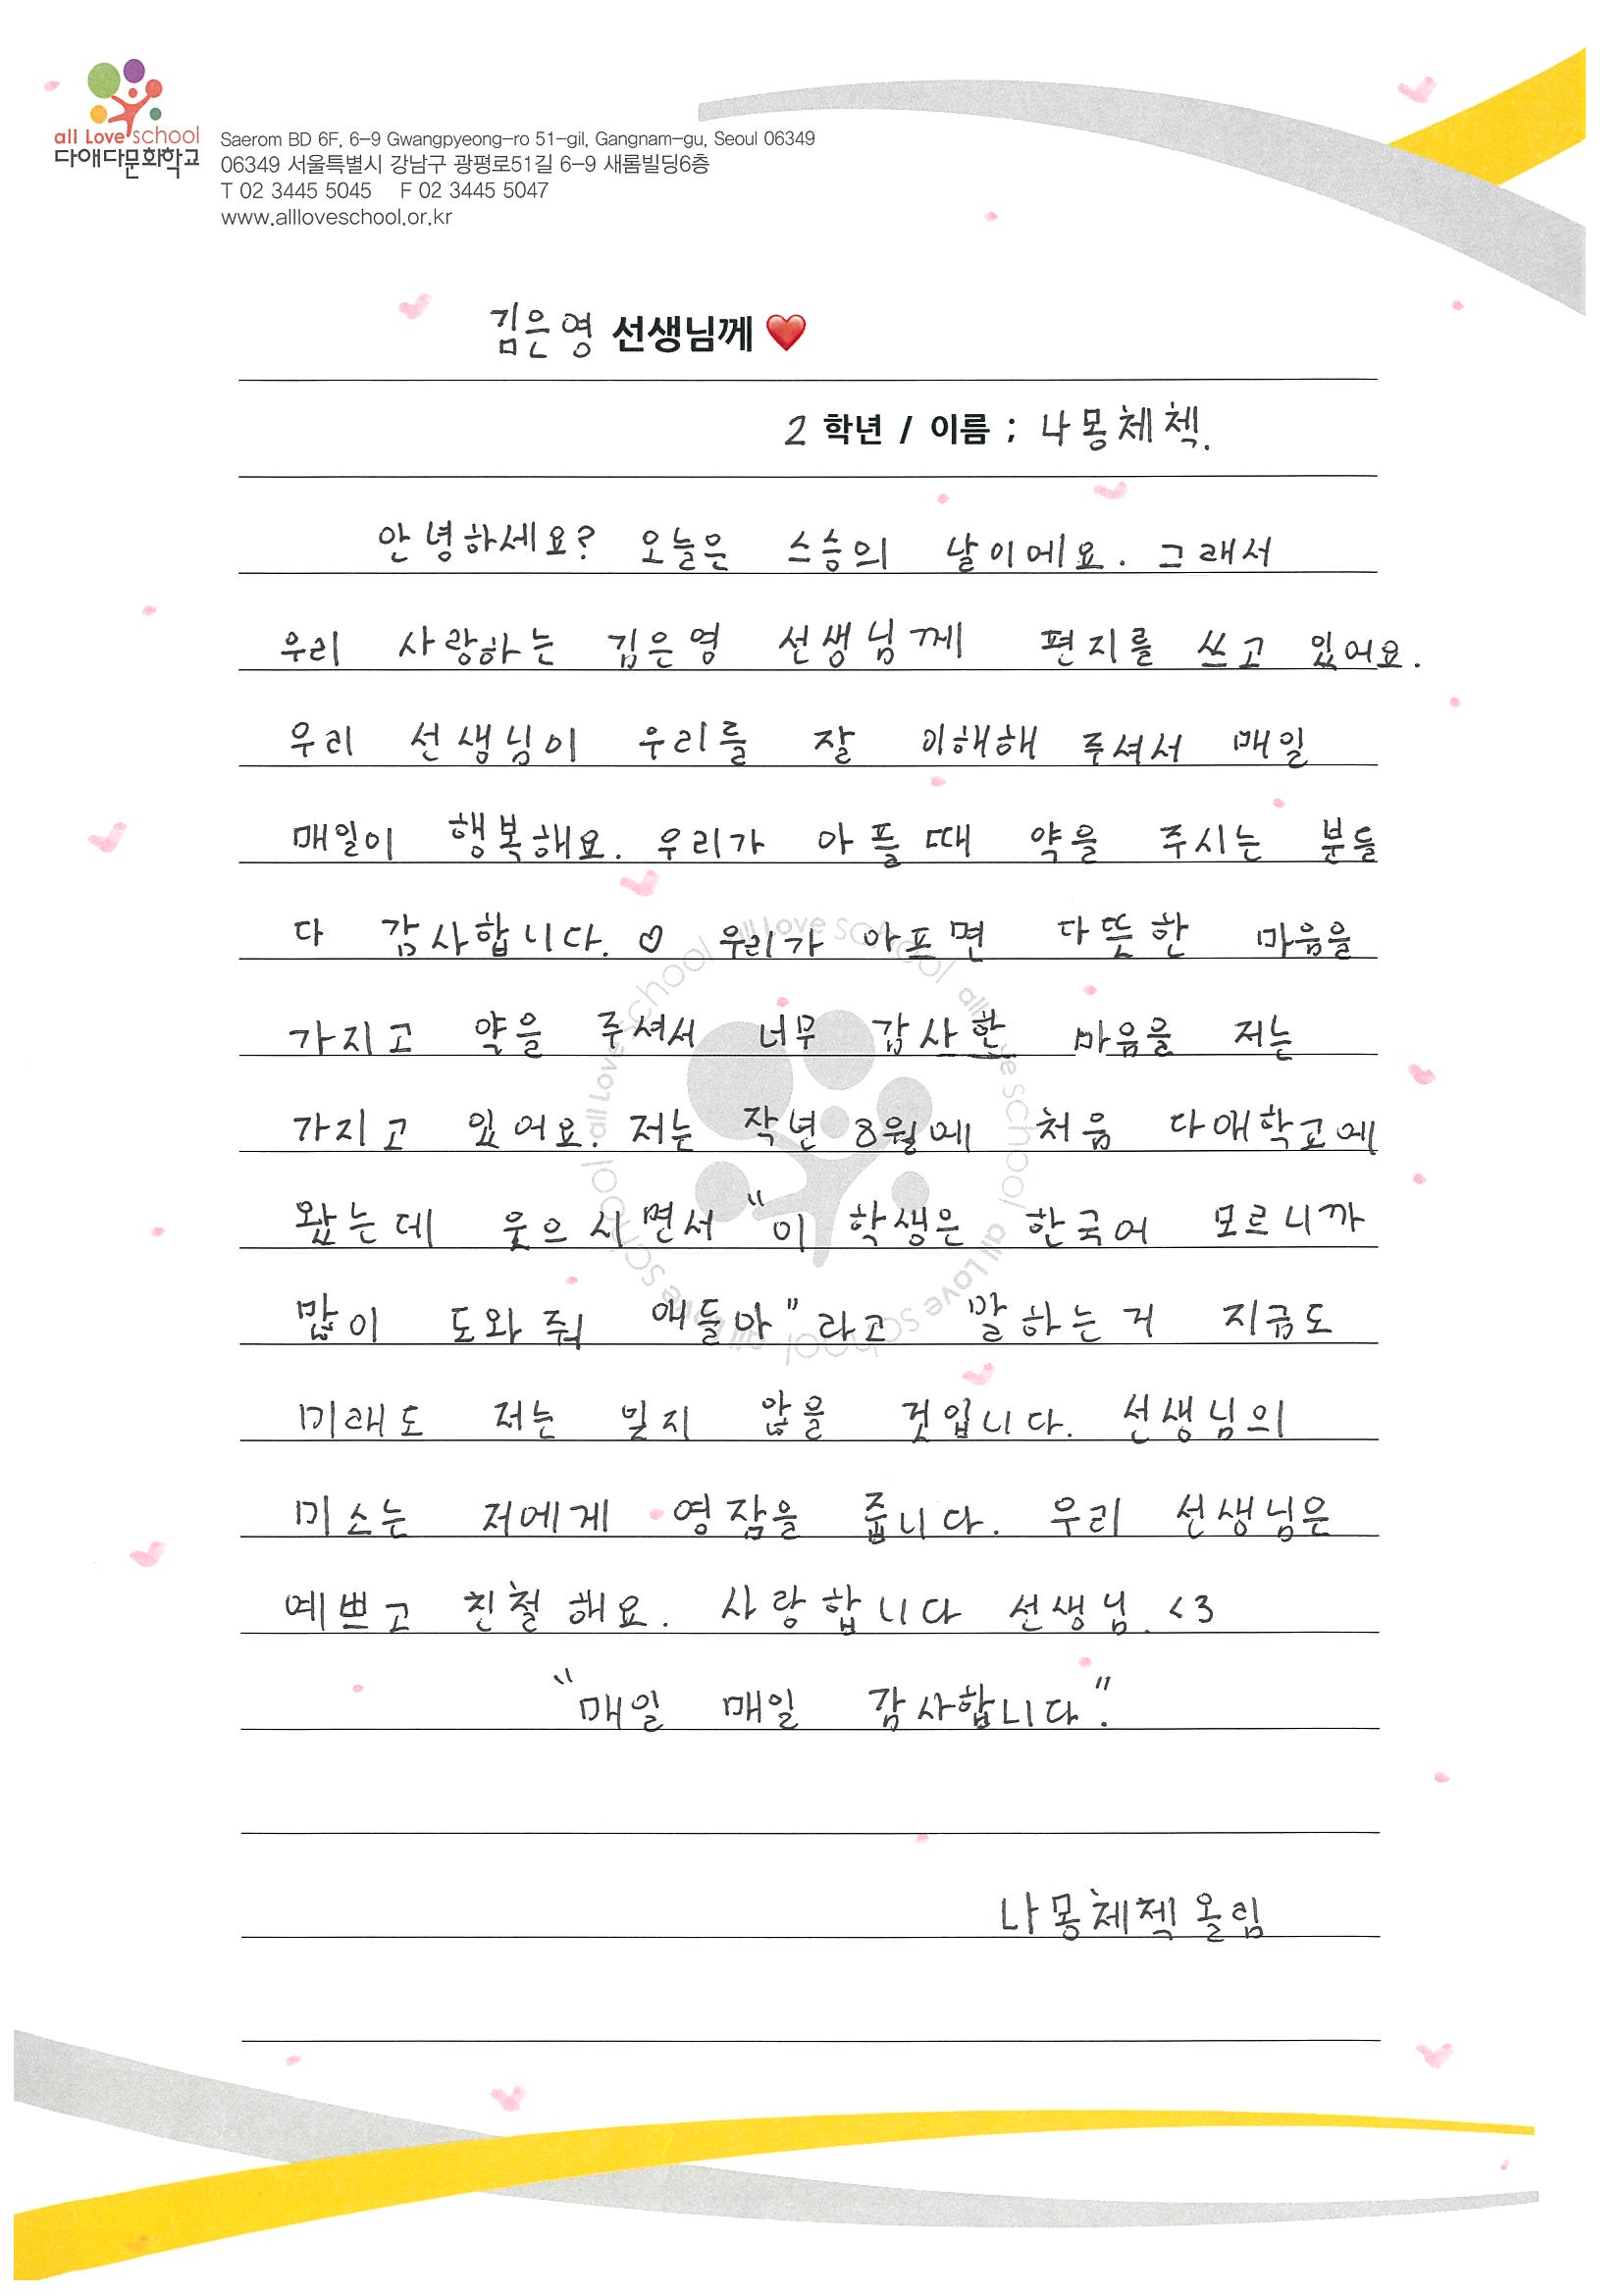 all Love school
다애다문화학교
Saerom BD 6F, 6-9 Gwangpyeong-ro 51-gil, Gangnam-gu, Seoul 06349
06349 서울특별시 강남구 광평로51길 6-9 새롬빌딩6층
T 02 3445 5045 F 02 3445 5047
www.allloveschool.or.kr
김은영 선생님께 ❤️
2 학년 / 이름 ; 나몽체첵.
안녕하세요? 오늘은 스승의 날이에요. 그래서
우리 사랑하는 김은영 선생님께 편지를 쓰고 있어요.
우리 선생님이 우리를 잘 이해해 주셔서 매일
매일이 행복해요. 우리가 아플 때 약을 주시는 분들
다 감사합니다. ♡ 우리가 아프면 다뜻한 마음을
가지고 약을 주셔서 너무 감사한 마음을 저는
가지고 있어요. 저는 작년 8월에 처음 다애학교에
왔는데 웃으시면서 "이 학생은 한국어 모르니까
많이 도와줘 애들아" 라고 말하는 거 지금도
미래도 저는 잊지 않을 것입니다. 선생님의
미소는 저에게 영잠을 줍니다. 우리 선생님은
예쁘고 친절해요. 사랑합니다 선생님. <3
"매일 매일 감사합니다."
나몽체첵 올림
all Love school all Love school all Love school all Love school all Love school